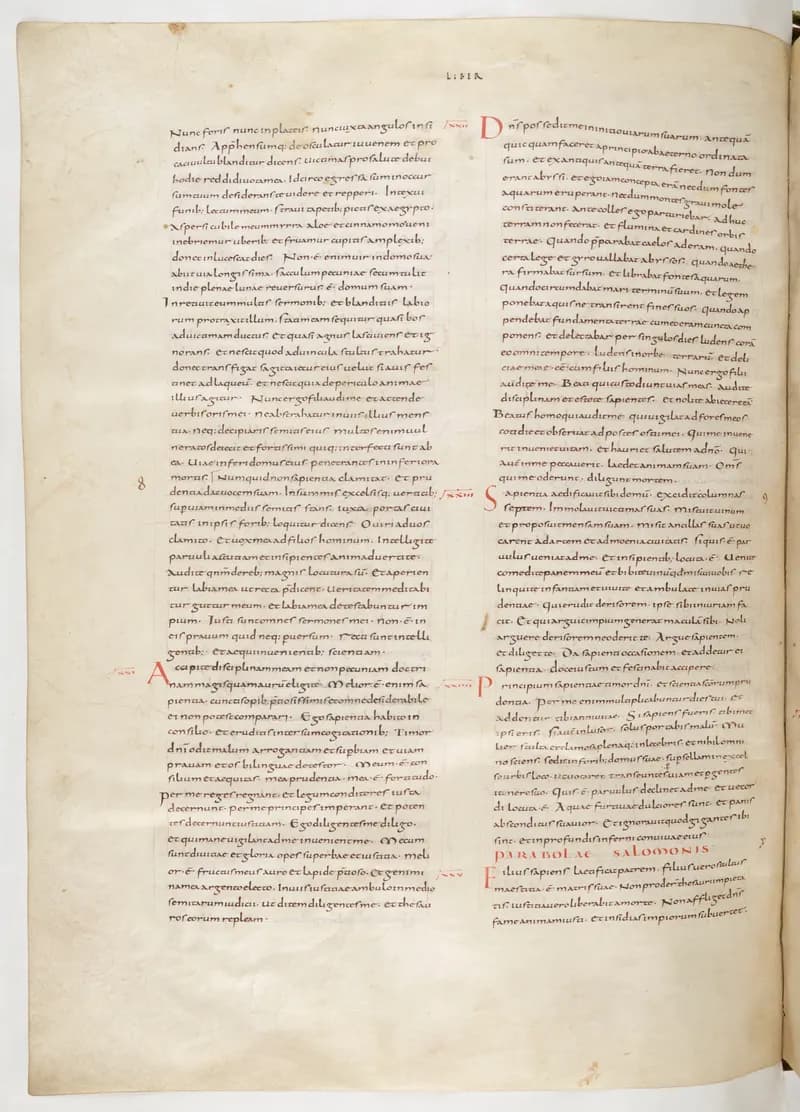 LIBER
Nunc foris nunc in plateis nunc iuxta angulos insi
dians. Apphensumq; deosculatur iuuenem et pro
caci uultu blanditur dicens. uictimas pro salute debui
hodie reddidi uota mea. Idcirco egressa sum in occur
sum tuum desiderans te uidere et repperi. Intexui
funib; lectum meum. straui tapetib; pictis ex aegypto.
Aspersi cubile meum myrra et aloe et cinnamomo ueni
inebriemur uberib; et fruamur cupitis amplexib;
donec inlucescat dies. Non ē enim uir in domo sua
abiit uia longissima. sacculum pecuniae secum tulit
in die plenae lunae reuersurus ē domum suam.
Inretiuit eum multis sermonib; et blanditiis labio
rum protraxit illum. statim eam sequitur quasi bos
ductus ad uictimam. Et quasi agnus lasciuiens et ig
norans. Et nescit quod ad uincula stultus trahatur
donec transfigat sagitta iecur eius uelut si auis fes
tinet ad laqueū. et nescit quia de periculo animae
illius agitur. Nunc ergo fili audi me et attende
uerbis oris mei. ne abstrahatur in uiis illius mens
tua. neq; decipiaris semitis eius. multos enim uul
neratos deiecit et fortissimi quiq; interfecti sunt ab
ea. Uiae inferi domus eius penetrantes in interiora
mortis. Numquid non sapientia clamitat. Et pru
dentia dat uocem suam. In summis excelsisq; uerticib;
supra uiam in mediis semitis stans. iuxta portas ciui
tatis in ipsis forib; loquitur dicens. O uiri ad uos
clamito. Et uox mea ad filios hominum. Intellegite
paruuli astutiam et insipientes animaduertite.
Audite qnm de reb; magnis locutura sū. Et aperien
tur labia mea ut recta pdicent. Ueritatem meditabi
tur guttur meum. Et labia mea detestabuntur im
pium. Iusti sunt omnes sermones mei. Non ē in
eis prauum quid neq; puersum. recti sunt intelli
gentib; Et aequi inuenientib; scientiam.
XXI Accipite disciplinam meam et non pecuniam doctri
nam magis quam aurū eligite. Melior ē enim sa
pientia cunctis opib; ptiosissimis et omne desiderabile
ei non potest comparari. Ego sapientia habito in
consilio. et eruditis intersum cogitationib; Timor
dnī odit malum. arrogantiam et supbiam et uiam
prauam et os bilingue detestor. Meum ē con
silium et aequitas. mea prudentia. mea ē fortitudo.
per me reges regnant. Et legum conditores iusta
decernunt. per me principes imperant. Et poten
tes decernunt iustitiam. Ego diligentes me diligo.
et qui mane uigilant ad me inuenient me. Mecum
sunt diuitiae et gloria opes superbae et iustitia. meli
or ē fructus meus auro et lapide ptioso. Et genimi
na mea argento electo. In uiis iustitiae ambulo in medio
semitarum iudicii. Ut ditem diligentes me. Et thesau
ros eorum repleam.
XXII Dns possedit me in initio uiarum suarum. antequā
quicquam faceret a principio ab aeterno ordinata
sum. et ex antiquis antequā terra fieret. Non dum
erant abyssi. et ego iam concepta erā necdum fontes
aquarum eruperant. necdum montes graui mole
constiterant. Ante colles ego parturiebar. adhuc
terram non fecerat. Et flumina et cardines orbis
terrae. Quando pparabat caelos aderam. quando
certa lege et gyro uallabat abyssos. quando aethe
ra firmabat sursum. Et librabat fontes aquarum.
quando circumdabat mari terminū suum. et legem
ponebat aquis ne transirent fines suos. Quando ap
pendebat fundamenta terrae cum eo eram cuncta com
ponens. et delectabar per singulos dies ludens corā
eo omni tempore. ludens in orbe terrarū. Et deli
ciae meae eē cum filiis hominum. Nunc ergo filii
audite me. Beati qui custodiunt uias meas. Audite
disciplinam et estote sapientes. Et nolite abicere eā
Beatus homo qui audit me. qui uigilat ad fores meos
cotidie et obseruat ad postes ostii mei. Qui me inuene
rit inueniet uitam. et hauriet salutem a dno. Qui
autē in me peccauerit. laedet animam suam. Omns
qui me oderunt. diligunt mortem.
XXIII Sapientia aedificauit sibi domū. excidit columnas
septem. Immolauit uictimas suas. miscuit uinum
et proposuit mensam suam. misit ancillas suas ut uo
carent ad arcem et ad moenia ciuitatis. Si quis ē par
uulus ueniat ad me. Et insipientib; locuta ē. Uenite
comedite panem meū et bibite uinū qd miscui uobis. re
linquite infantiam et uiuite et ambulate in uiis pru
dentiae. Qui erudit derisorem. ipse sibi iniuriam fa
cit. Et qui arguit impium generat maculā sibi. Noli
arguere derisorem ne oderit te. Argue sapientem
et diliget te. Da sapienti occasionem. et addetur ei
sapientia. doce iustum et festinabit accipere.
XXIIII Principium sapientiae timor dnī. et scientia scōrum pru
dentia. Per me enim multiplicabuntur dies tui. et
addentur tibi anni uitae. Si sapiens fueris tibimet
ipsi eris. si autē inlusor. solus portabis malū. Mu
lier stulta et clamosa plenaq; inlecebris et nihil omni
no sciens. sedit in forib; domus suae. sup sellam in excel
so urbis loco. ut uocaret transeuntes uiam et pgentes
itinere suo. Quis ē paruulus declinet ad me. et uecor
di locuta ē. Aquae furtiuae dulciores sunt. et panis
absconditus suauior. Et ignorauit quod gigantes ibi
sint. et in profundis inferni conuiuae eius
PARABOLAE SALOMONIS
XXV Filius sapiens laetificat patrem. filius uero stultus
maestitia ē matris suae. Non proderunt thesauri impieta
tis. iustitia uero liberabit a morte. Non affliget dns
fame animam iusti. et insidias impiorum subuertet.